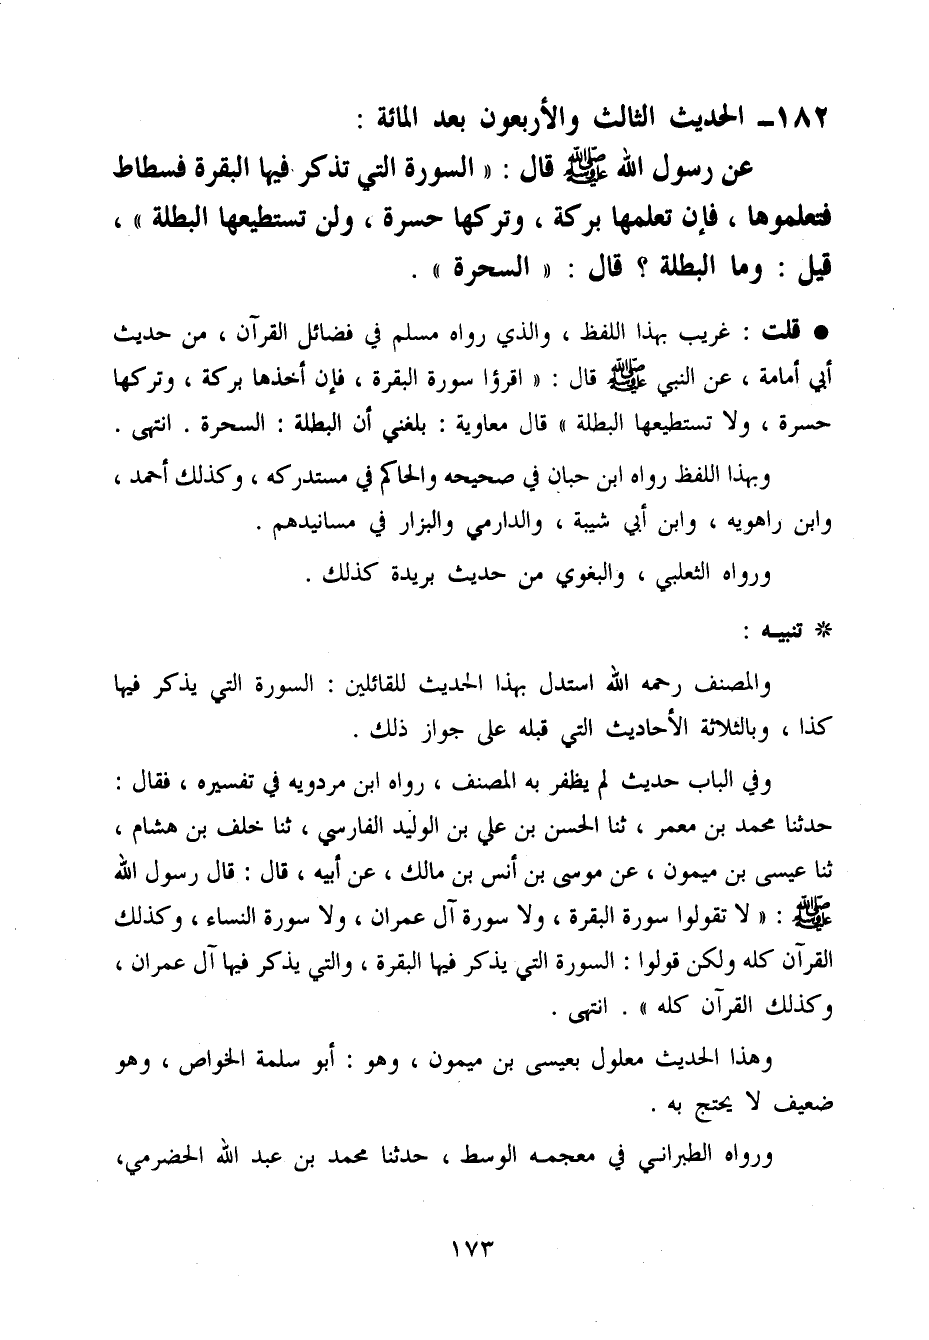 ١٨٢ــ الحديث الثالث والأربعون بعد المائة :
عن رسول الله ﷺ قال : « السورة التي تذكر فيها البقرة فسطاط
فتعلموها ، فإن تعلمها بركة ، وتركها حسرة ، ولن تستطيعها البطلة » ،
قيل : وما البطلة ؟ قال : « السحرة » .
● قلت : غريب بهذا اللفظ ، والذي رواه مسلم في فضائل القرآن ، من حديث
أبي أمامة ، عن النبي ﷺ قال : « اقرؤا سورة البقرة ، فإن أخذها بركة ، وتركها
حسرة ، ولا تستطيعها البطلة » قال معاوية : بلغني أن البطلة : السحرة . انتهى .
وبهذا اللفظ رواه ابن حبان في صحيحه والحاكم في مستدركه ، وكذلك أحمد ،
وابن راهويه ، وابن أبي شيبة ، والدارمي والبزار في مسانيدهم .
ورواه الثعلبي ، والبغوي من حديث بريدة كذلك .
* تنبيـه :
والمصنف رحمه الله استدل بهذا الحديث للقائلين : السورة التي يذكر فيها
كذا ، وبالثلاثة الأحاديث التي قبله على جواز ذلك .
وفي الباب حديث لم يظفر به المصنف ، رواه ابن مردويه في تفسيره ، فقال :
حدثنا محمد بن معمر ، ثنا الحسن بن علي بن الوليد الفارسي ، ثنا خلف بن هشام ،
ثنا عيسى بن ميمون ، عن موسى بن أنس بن مالك ، عن أبيه ، قال : قال رسول الله
ﷺ : « لا تقولوا سورة البقرة ، ولا سورة آل عمران ، ولا سورة النساء ، وكذلك
القرآن كله ولكن قولوا : السورة التي يذكر فيها البقرة ، والتي يذكر فيها آل عمران ،
وكذلك القرآن كله » . انتهى .
وهذا الحديث معلول بعيسى بن ميمون ، وهو : أبو سلمة الخواص ، وهو
ضعيف لا يحتج به .
ورواه الطبراني في معجمـه الوسط ، حدثنا محمد بن عبد الله الحضرمي،
١٧٣